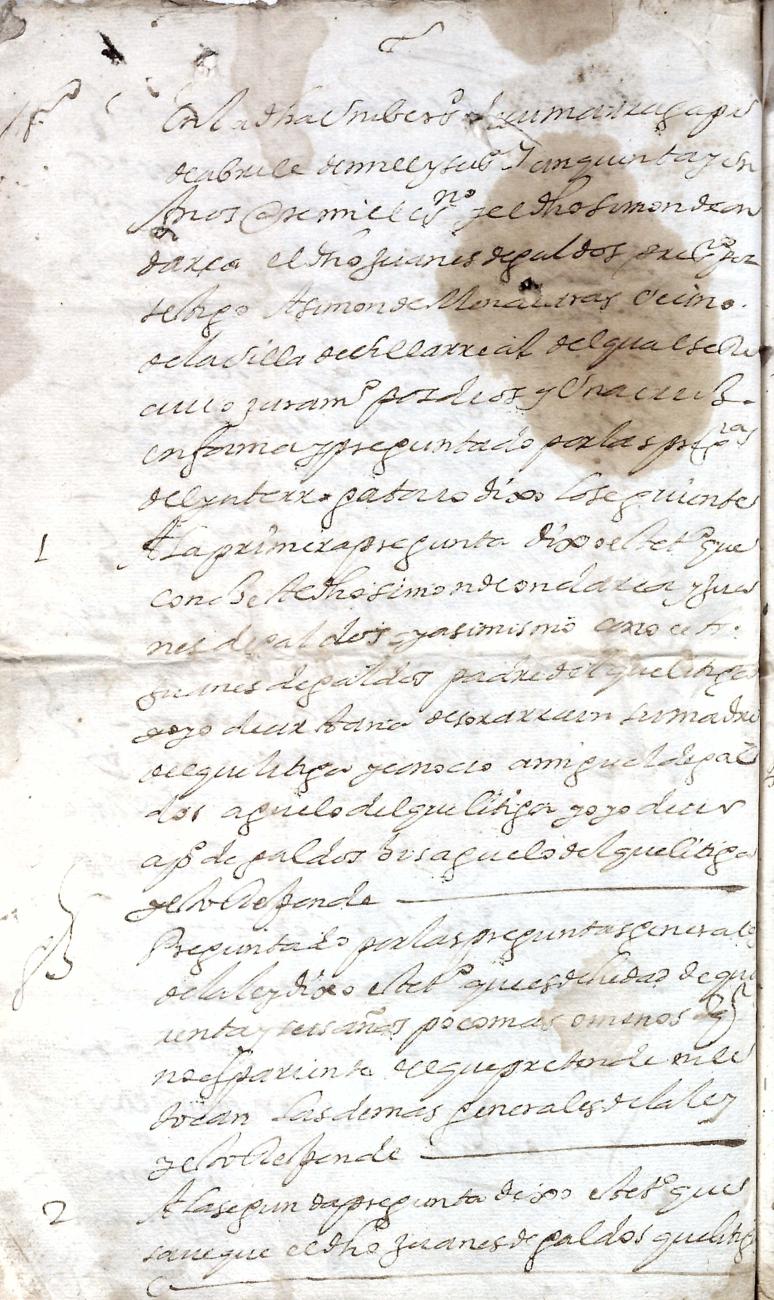 En la dha Unibersd de çumarraga a pro
de abrill de mill y seisos y cinquenta y un
años Ante mi el esno y el dho Simon de on
darra el dho Juanes de galdos presto por
testigo A Simon de Vecino
de la Villa de Villarreal del qual se Re
ciuio juramto por dios y Una cruz
en forma y preguntado por las pregtas
del ynterrogatorio dixo lo seguiente
1 A la primera pregunta dixo este to que
conoze Al dho Simon de ondarra y Jua
nes de galdos y asimismo conocio A
Juanes de galdos padre del que litiga
y oyo decir su madre
del que litiga y conocio a miguel de gal
dos aguelo del que litiga y oyo decir
a po de galdos bisaguelo del que litiga
y esto Responde
Preguntado por las preguntas generales
de la ley dixo este to que es de hedad de
años poco mas o menos y q
no es pariente del que pretende ni le
tocan las demas generales de la ley
y esto Responde
2 A la segunda pregunta dixo este to que
saue que el dho Juanes de galdos que litiga